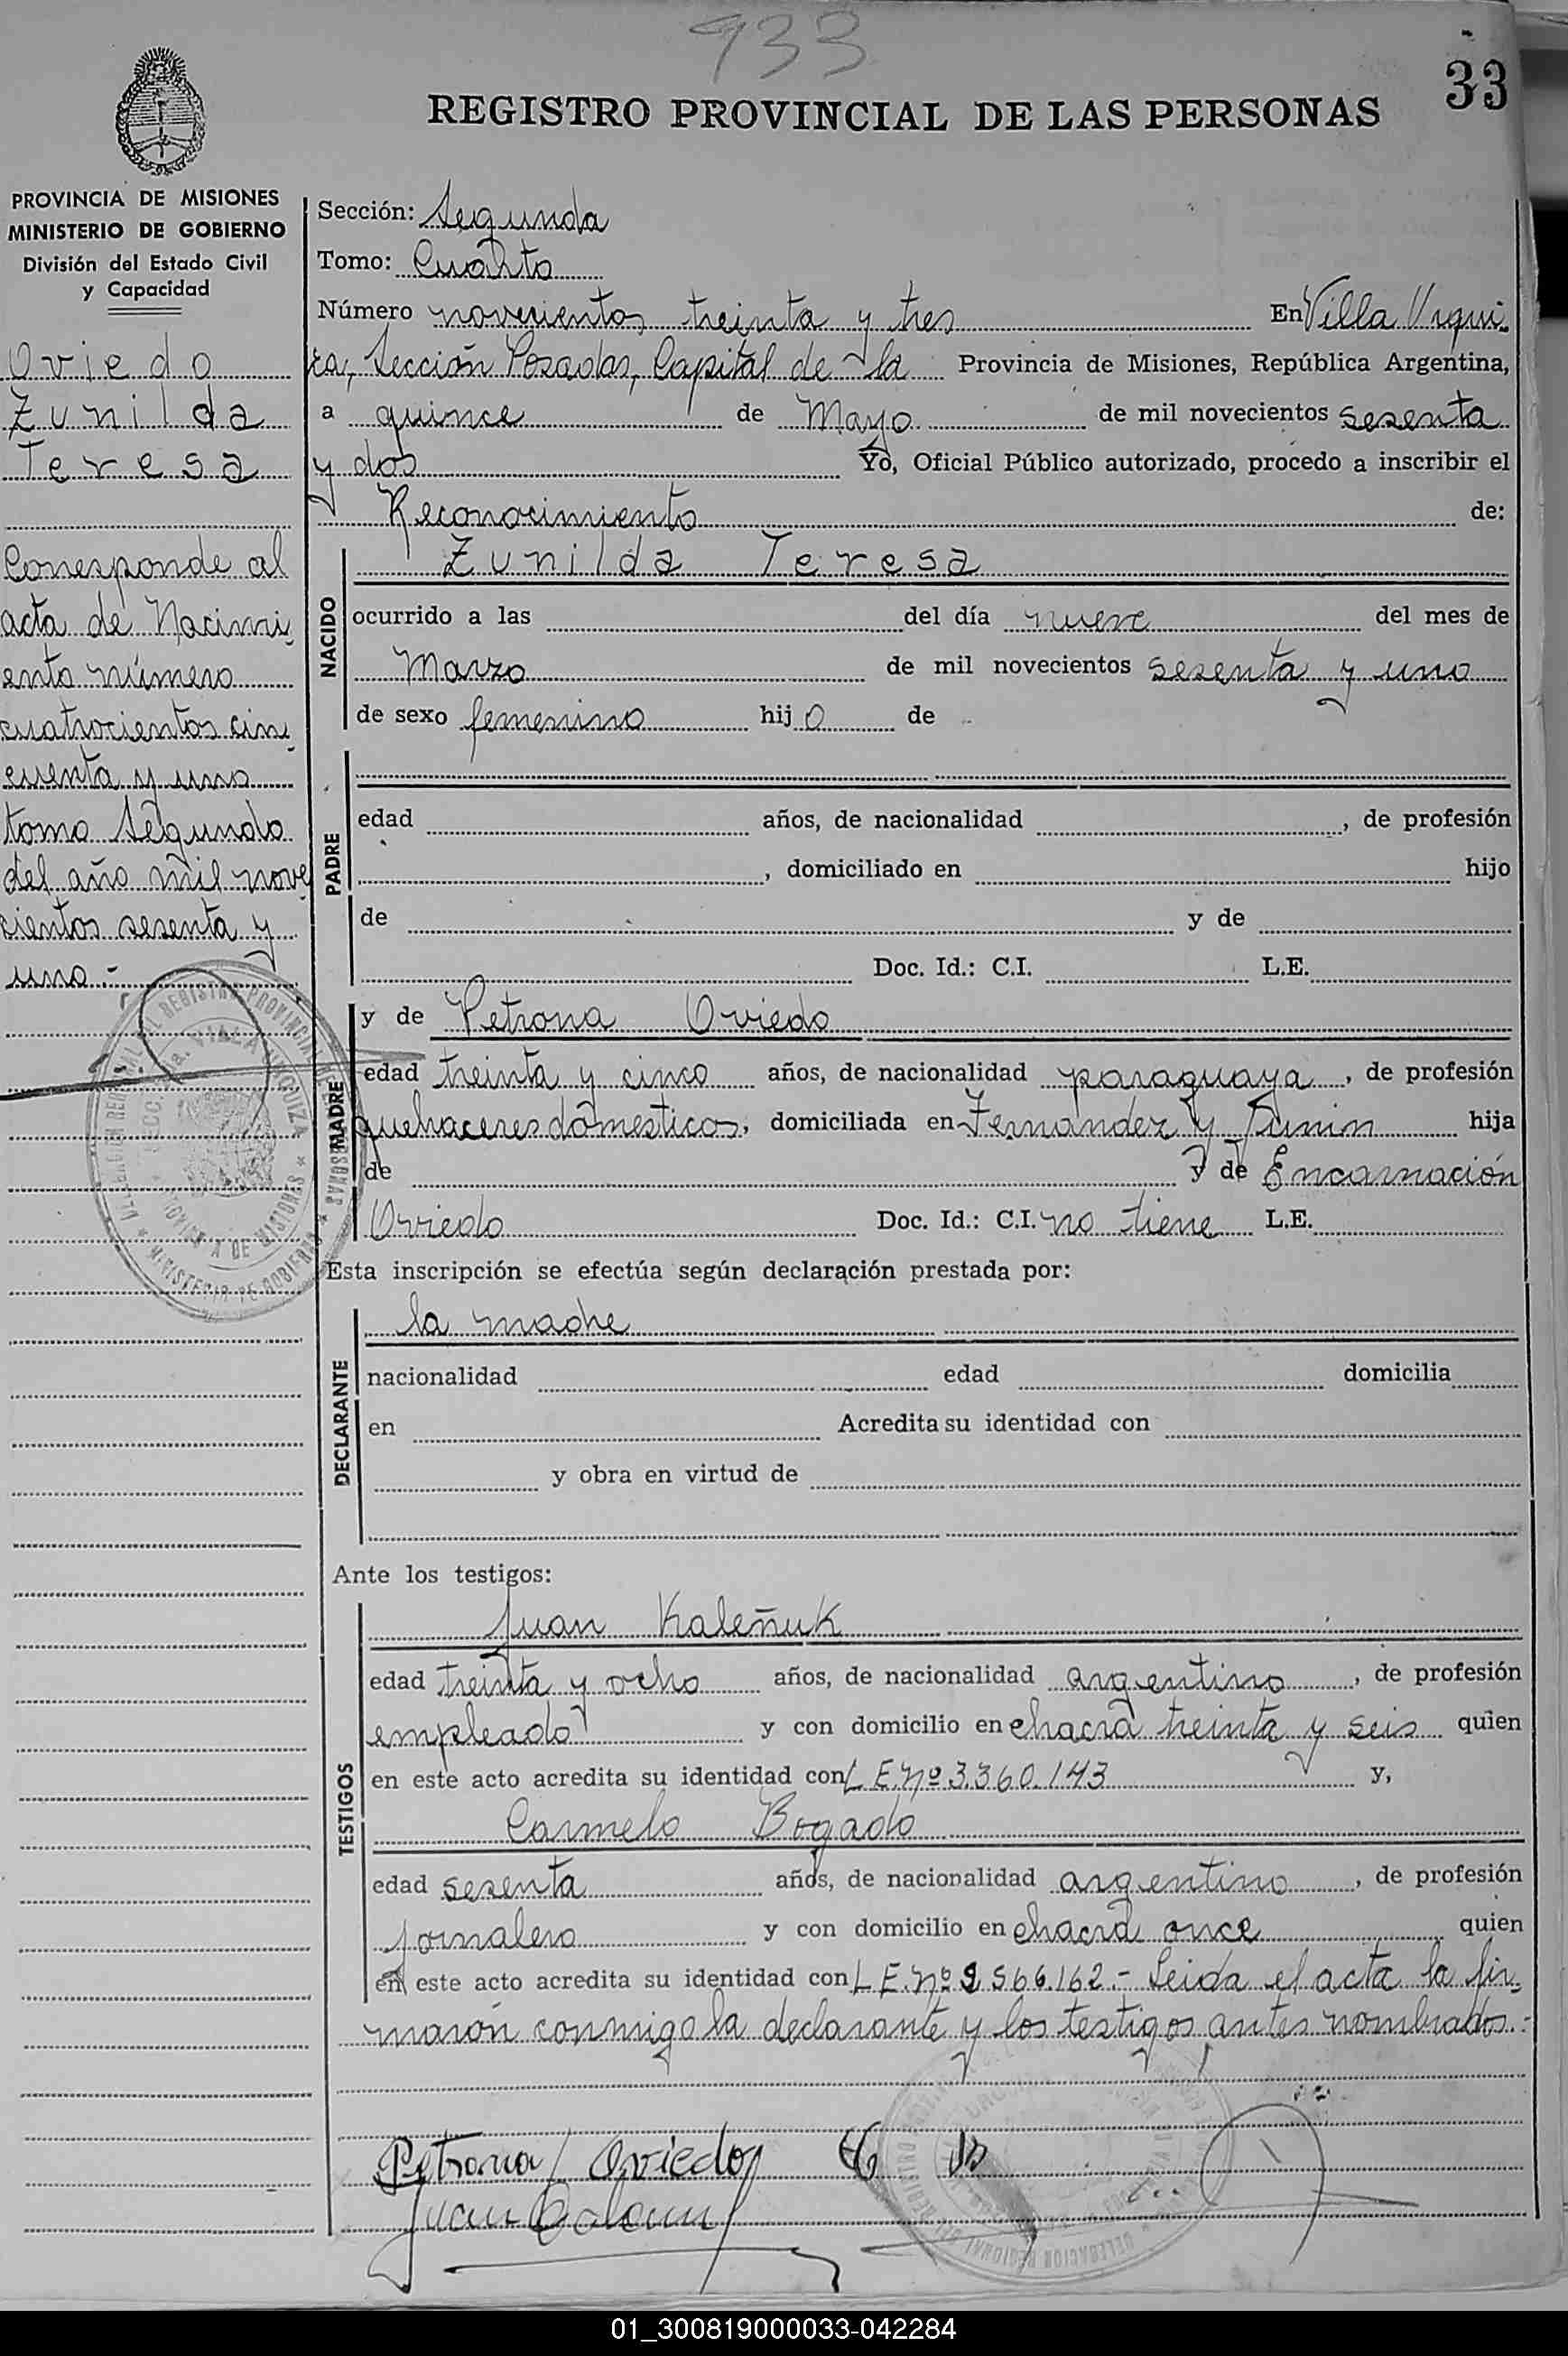 933
33
REGISTRO PROVINCIAL DE LAS PERSONAS
PROVINCIA DE MISIONES
MINISTERIO DE GOBIERNO
División del Estado Civil
y Capacidad
Oviedo
Zunilda
Teresa
Corresponde al
acta de Nacimi
ento número
cuatrocientos cin
cuenta y uno
tomo Segundo
del año mil nove
cientos sesenta y
uno.-
Sección: Segunda
Tomo: Cuarto
Número novecientos treinta y tres En Villa Urqui
za, Sección Posadas, Capital de la Provincia de Misiones, República Argentina,
a quince de Mayo de mil novecientos sesenta
y dos Yo, Oficial Público autorizado, procedo a inscribir el
Reconocimiento de:
NACIDO
Zunilda Teresa
ocurrido a las del día nueve del mes de
Marzo de mil novecientos sesenta y uno
de sexo femenino hij a de
PADRE
edad años, de nacionalidad , de profesión
, domiciliado en hijo
de y de
Doc. Id.: C.I. L.E.
MADRE
y de Petrona Oviedo
edad treinta y cinco años, de nacionalidad paraguaya, de profesión
quehaceres domésticos, domiciliada en Fernandez y Junin hija
de y de Encarnación
Oviedo Doc. Id.: C.I. no tiene L.E.
Esta inscripción se efectúa según declaración prestada por:
DECLARANTE
la madre
nacionalidad edad domicilia
en Acredita su identidad con
y obra en virtud de
Ante los testigos:
TESTIGOS
Juan Kaleñuk
edad treinta y ocho años, de nacionalidad argentino, de profesión
empleado y con domicilio en chacra treinta y seis quien
en este acto acredita su identidad con L.E.Nº 3.360.143 y,
Carmelo Bogado
edad sesenta años, de nacionalidad argentino, de profesión
jornalero y con domicilio en chacra once quien
en este acto acredita su identidad con L.E.Nº 2.566.162.- Leida el acta la fir-
marón conmigo la declarante y los testigos antes nombrados.-
Petrona Oviedo
Juan
01_300819000033-042284